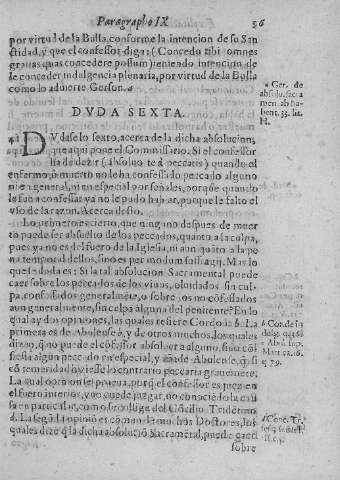 Paragrapho IX 56
por virtud de la Bulla, conforme la intencion de su San
ctidad, y que el confessor diga: (Concedo tibi omnes
gratias quas concedere possum) teniendo intencion de
le conceder indulgencia plenaria, por virtud de la Bulla
como lo aduierte Gerson. a
a Ger. de
absolu. sacra
men. ab ha
bent. 33. lit.
H.
DVDA SEXTA.
DVdase lo sexto, acerca de la dicha absolucion,
que aqui pone el Commissario. Si el confessor
ha de dezir (absoluo te à peccatis) quando el
enfermo, ò muerto no le ha confessado peccado alguno
ni en general, ni en especial por señales, porque quando
le fue a confessar ya no le pudo hablar, porque le falto el
vso de la razon. Acerca desto.
Lo primero es cierto, que ninguno despues de muer
to puede ser absuelto de los peccados, quanto a la culpa,
pues ya no es del fuero de la Iglesia, ni aun quãto a la pe
na temporal dellos, sino es per modum suffragij. Mas lo
que se duda es: Si la tal absolucion Sacramental puede
caer sobre los peccados de los viuos, oluidados sin cul
pa, confessados generalmẽte, o sobre los no cõfessados
aun generalmente, sin culpa alguna del penitente? En lo
qual ay dos opiniones, las quales refiere Cordoua b. La
primera es de Abulense c, y de otros muchos, los quales
dizen, q̃ no puede el cõfessor absoluer a alguno, sino cõ
fiessa algun peccado en especial, y añade Abulense, q̃ si
cõ temeridad hiziesse lo contrario peccaria grauemente.
b Cor. de in
dulg. q.
c Abul. sup.
Mat. ca. 16.
q. 79.
La qual opinion se prueua, porq̃ el confessor es juez en
el fuero interior, y no puede juzgar, no conosciẽdo la cau
sa en particular, como se collige del Cõcilio Tridẽtino
d. La segũda opiniõ es comun de muchos Doctores, los
quales dizẽ q̃ la dicha absoluciõ Sacramẽtal, puede caer
d Conc. Tri.
sobre